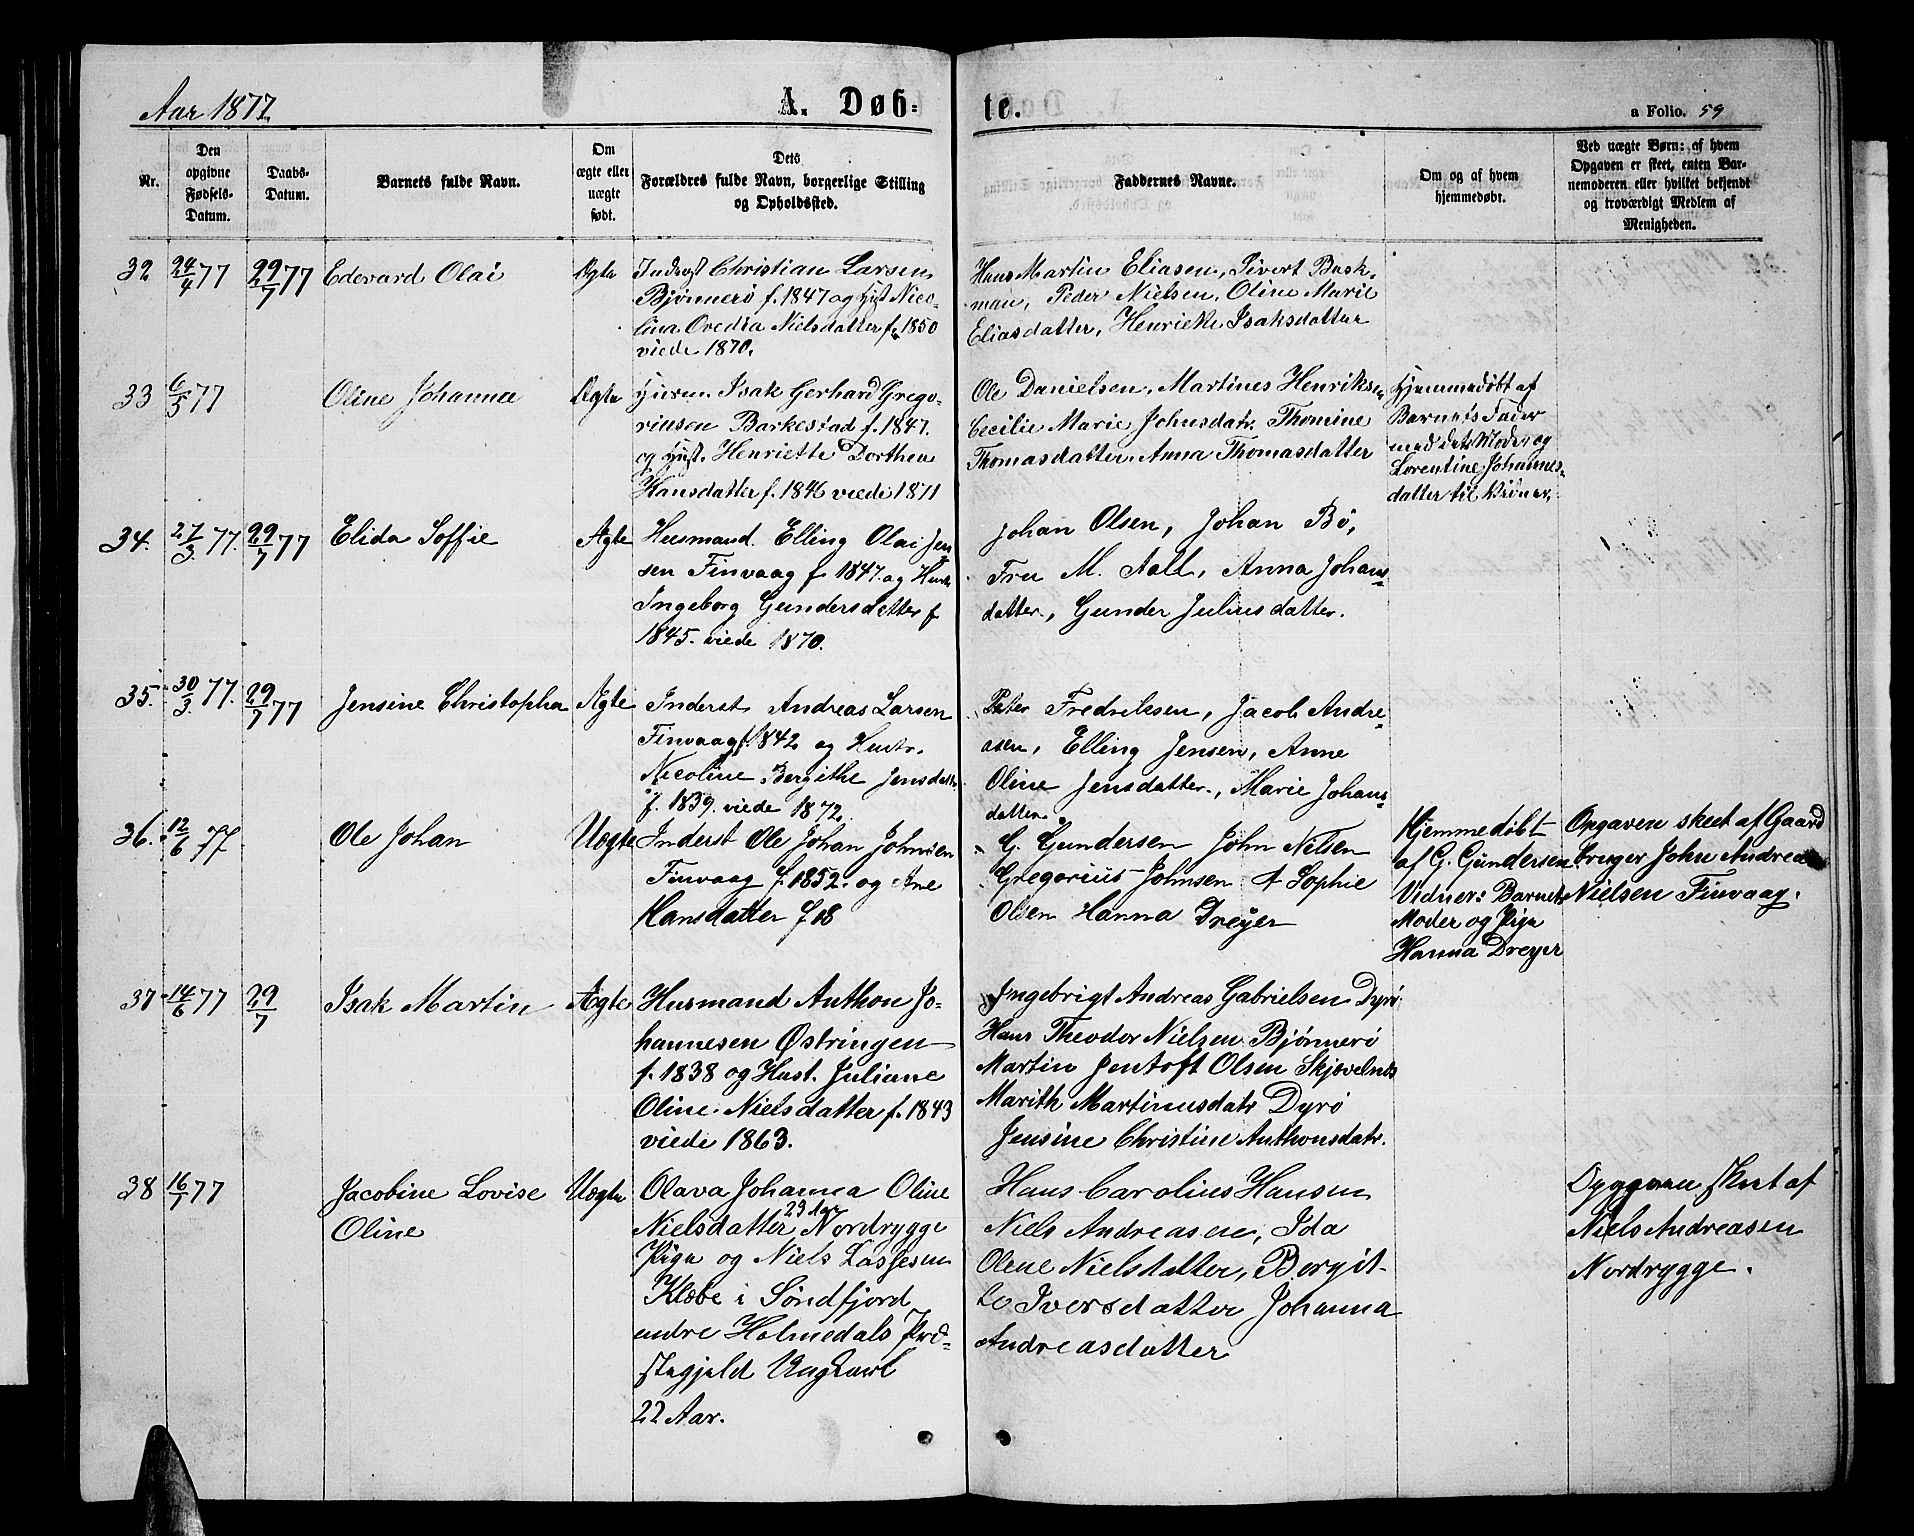 Aar 1877
A. Døb-
te.
a Folio. 59
Nr.
Den opgivne Fødsels-Datum.
Daabs-Datum.
Barnets fulde Navn.
Om ægte eller uægte født.
Dets Forældres fulde Navn, borgerlige Stilling og Opholdssted.
Faddernes Navne.
Om og af hvem hjemmedøbt.
Ved uægte Børn: af hvem Opgaven er skeet, enten Barnemoderen eller hvilket bekjendt og troværdigt Medlem af Menigheden.
32 24/4 77 29/7 77 Edevard Olai Ægte
Inderst Christian Larsen
Bjønnerø f. 1847 og Hust Nico-
lina Ovedia Nielsdatter f. 1850
viede 1870.
Hans Martin Eliasen, Sivert Busk-
man, Peder Nielsen, Oline Marie
Eliasdatter, Henrieke Isaksdatter
33 6/5 77 Oline Johanna Ægte
Isak Gerhard Grego-
rinsen Barkestad f. 1847.
og Hust. Henriette Dorthea
Hansdatter f. 1846 viede 1871
Ole Danielsen, Martines Henriksen
Cecilie Marie Johnsdatr. Thomine
Thomasdatter. Anna Thomasdatter
Hjemmedøbt af
Barnets Fader
med dets Moder og
Lorentine Johannes-
datter til Vidner.
34. 27/3 77. 29/7 77 Elida Soffie Ægte
Husmand. Elling Olai Jen
sen Finvaag f 1847. og Hustr
Ingeborg Gundersdatter f
1845. viede 1870.
Johan Olsen, Johan Bø,
Fru M. Aall, Anna Johans
datter., Gunder Juliusdatter.
35. 30/3 77. 29/7 77 Jensine Christopha Ægte
Inderst Andreas Larsen
Finvaag f. 1842 og Hustr.
Nicoline Bergithe Jensdatr.
f. 1839. viede 1872.
Peter Fredriksen, Jacob Andre-
asen, Elling Jensen, Anne
Oline Jensdatter., Marie Johans-
datter.
36. 12/6 77 Ole Johan Uægte
Inderst Ole Johan Johnsen
Finvaag f. 1852. og Ane
Hansdatter f. 18
G. Gundersen John Nilsen
Gregorius Johnsen A Sophie
Olsen Hanna Dreyer
Hjemmedøbt
af G. Gundersen
Vidner: Barnets
Moder og Pige
Hanna Dreyer
Opgaven skeet af Gaard
bruger John Andreas
Nielsen Finvaag.
37 14/6 77 29/7 Isak Martin Ægte
Husmand Anthon Jo-
hannesen Østringen
f. 1838 og Hust. Juliane
Oline Nielsdatter f. 1843
viede 1863.
Ingebrigt Andreas Gabrielsen Dyrø
Hans Theodor Nielsen Bjønnerø
Martin Jentoft Olsen Skjøvelnes
Marith Martinusdatr Dyrø
Jensine Christine Anthonsdatr.
38 16/7 77 Jacobine Lovise
Oline
Uægte
Olava Johanna Oline
Nielsdatter 23 Aar Nordrygge
Pige og Niels Lassesen
Klebe i Søndfjord
indre Holmedals Præ-
stegjeld Ungkarl
22 Aar.
Hans Carolius Hansen
Niels Andreasen, Ida
Olene Nielsdatter, Bergit-
te Iversdatter Johanna
Andreasdatter
Opgaven skeet af
Niels Andreasen
Nordrygge.